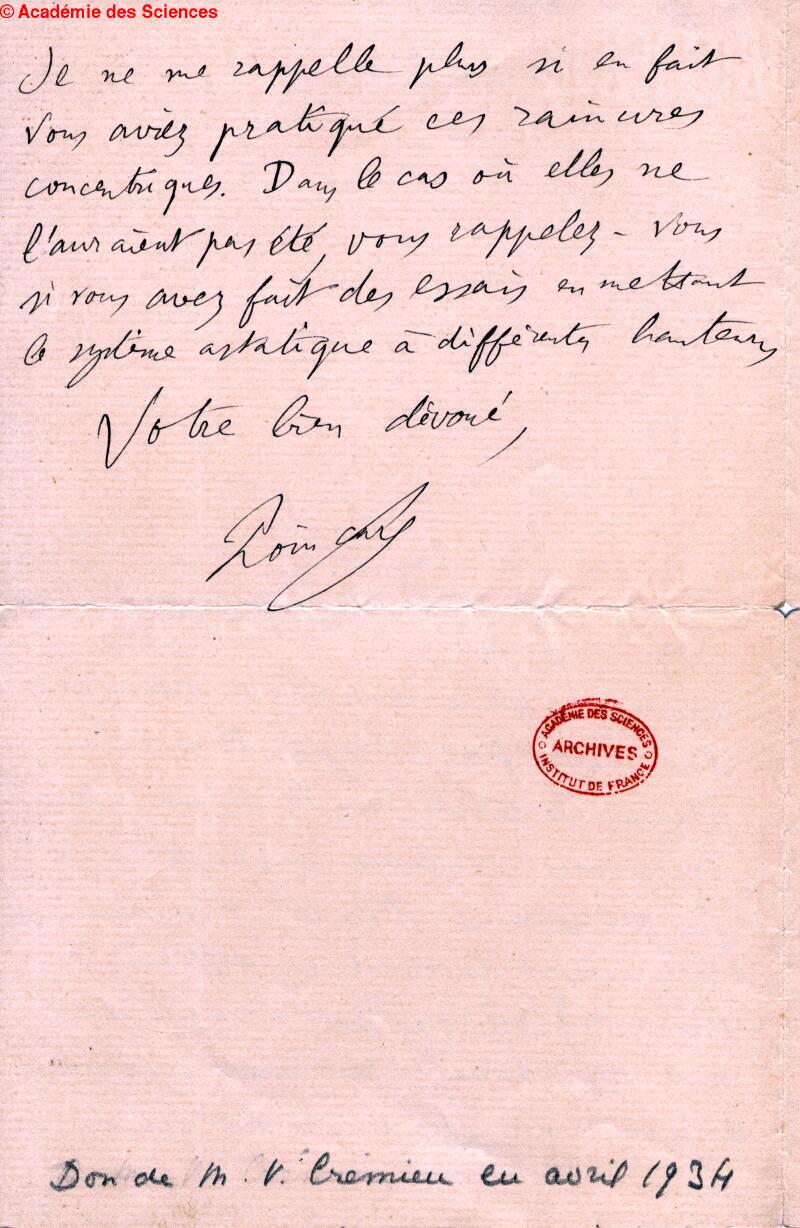 © Académie des Sciences
Je ne me rappelle plus si en fait
vous aviez pratiqué ces rainures
concentriques. Dans le cas où elles ne
l'auraient pas été, vous rappelez-vous
si vous avez fait des essais en mettant
le système astatique à différentes hauteurs
Votre bien dévoué,
Poincaré
ACADÉMIE DES SCIENCES
ARCHIVES
INSTITUT DE FRANCE
Don de M. V. Crémieu en avril 1934